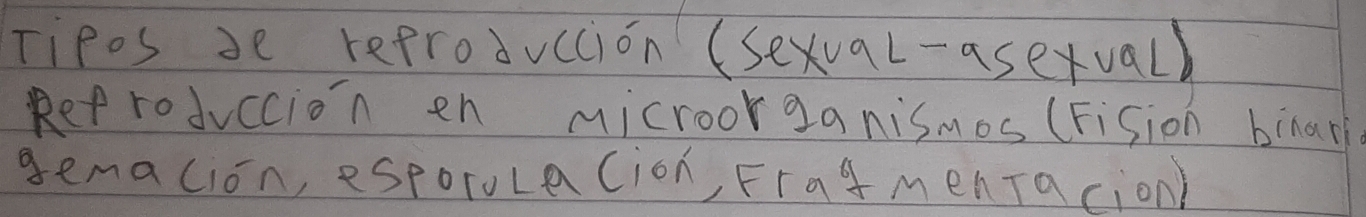 Tipos de reproducción (sexual-asexual)
Reproducción en microorganismos (Fisión binaria
gemación, esporulación, Fragmentacion)